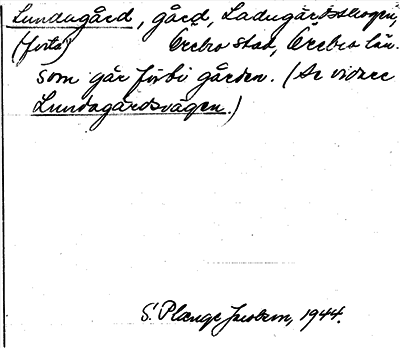 Lundagård, gård, Ladugårdsskogen,
(forts) Örebro stad, Örebro län.
som går förbi gården. (Se vidare
Lundagårdsvägen.)
S. Plange Jacobson, 1944.